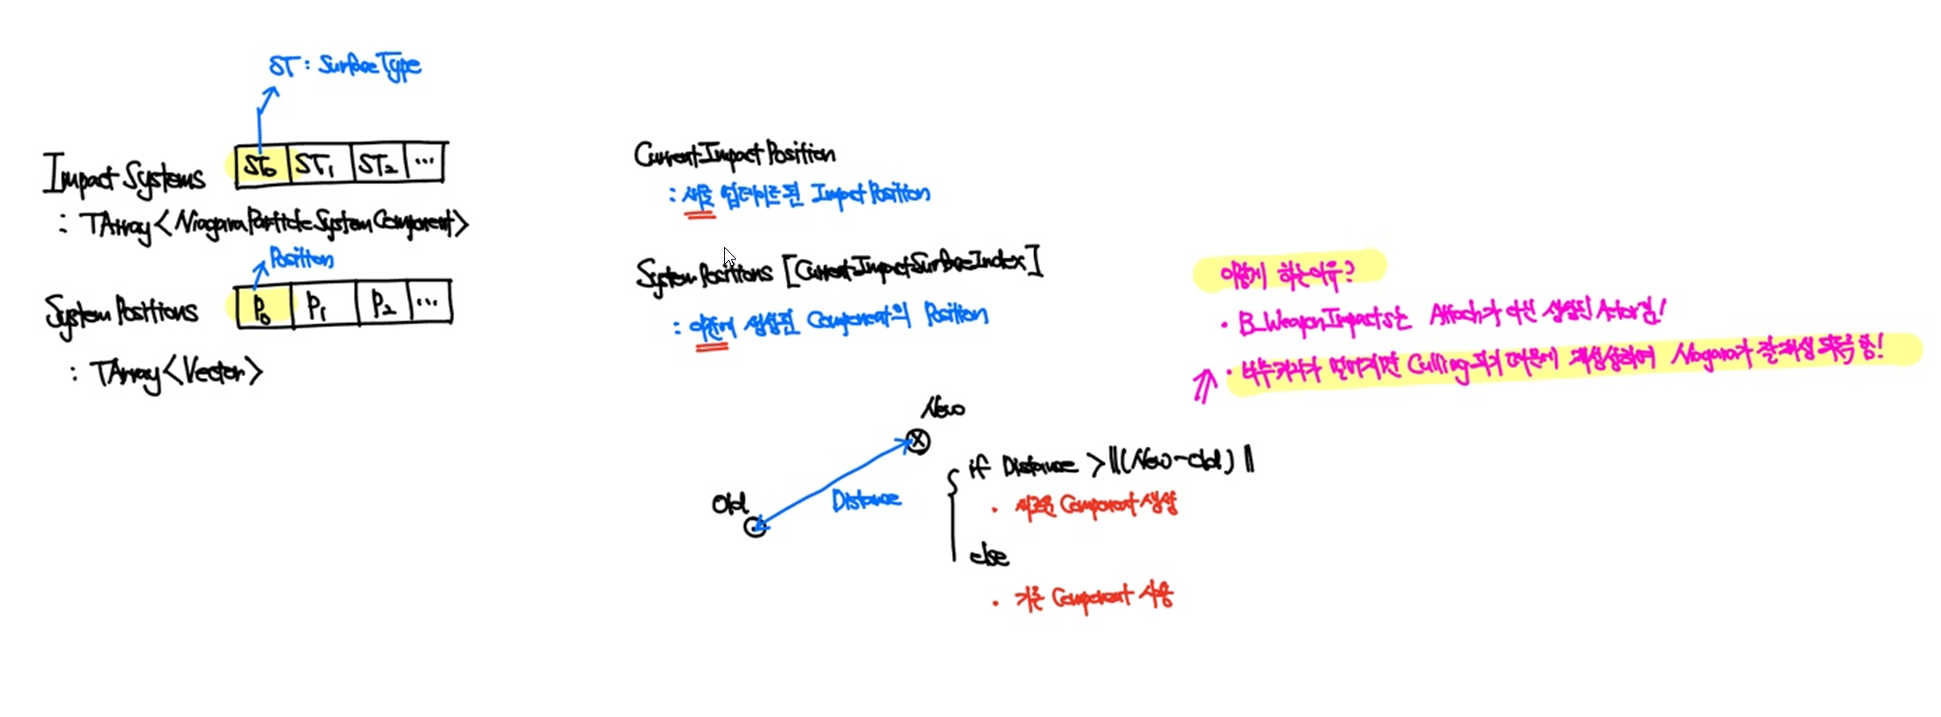 ST : Surface Type
Impact Systems
ST0 ST1 ST2 ...
: TArray<NiagaraParticleSystemComponent>
Position
System Positions
P0 P1 P2 ...
: TArray<Vector>
Current Impact Position
: 새로 업데이트된 Impact Position
System Positions [CurrentImpactSurfaceIndex]
: 이전에 생성된 Component의 Position
New
Old
Distance
if Distance > ||(New-old)||
• 새로운 Component 생성
else
• 기존 Component 사용
이렇게 하는 이유?
• B_WeaponImpacts는 Attach가 아닌 생성된 Actor임!
• 멀어지면 Culling되기 때문에 재생성하여 Niagara가 잘 재생되도록 함!